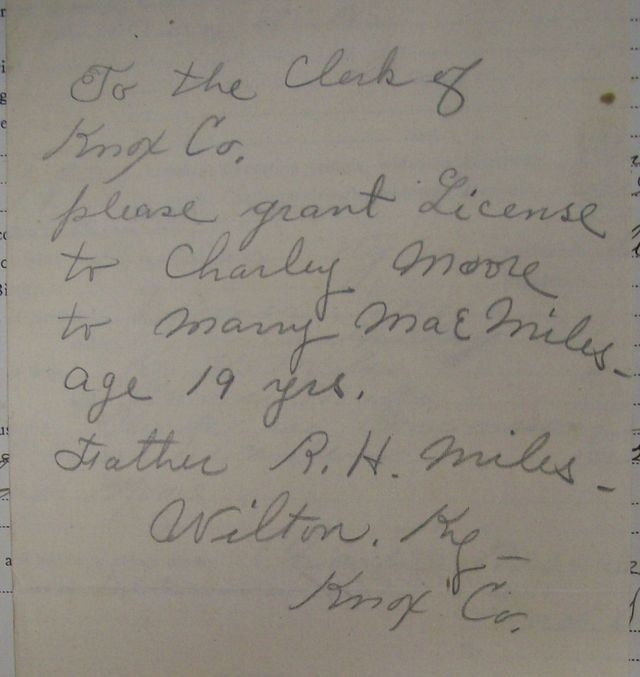 To the Clerk of
Knox Co.
please grant License
to Charley Moore
to marry Mae Miles-
age 19 yrs.
Father R. H. Miles-
Wilton, Ky-
Knox Co.